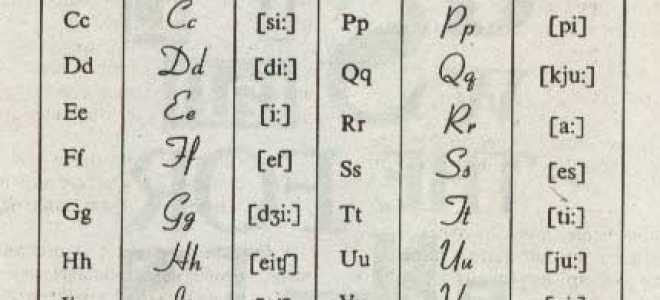 Cc Cc [si:] Pp Pp [pi]
Dd Dd [di:] Qq Qq [kju:]
Ee Ee [i:] Rr Rr [a:]
Ff Ff [ef] Ss Ss [es]
Gg Gg [dʒi:] Tt Tt [ti:]
Hh Hh [eitʃ] Uu Uu [ju:]